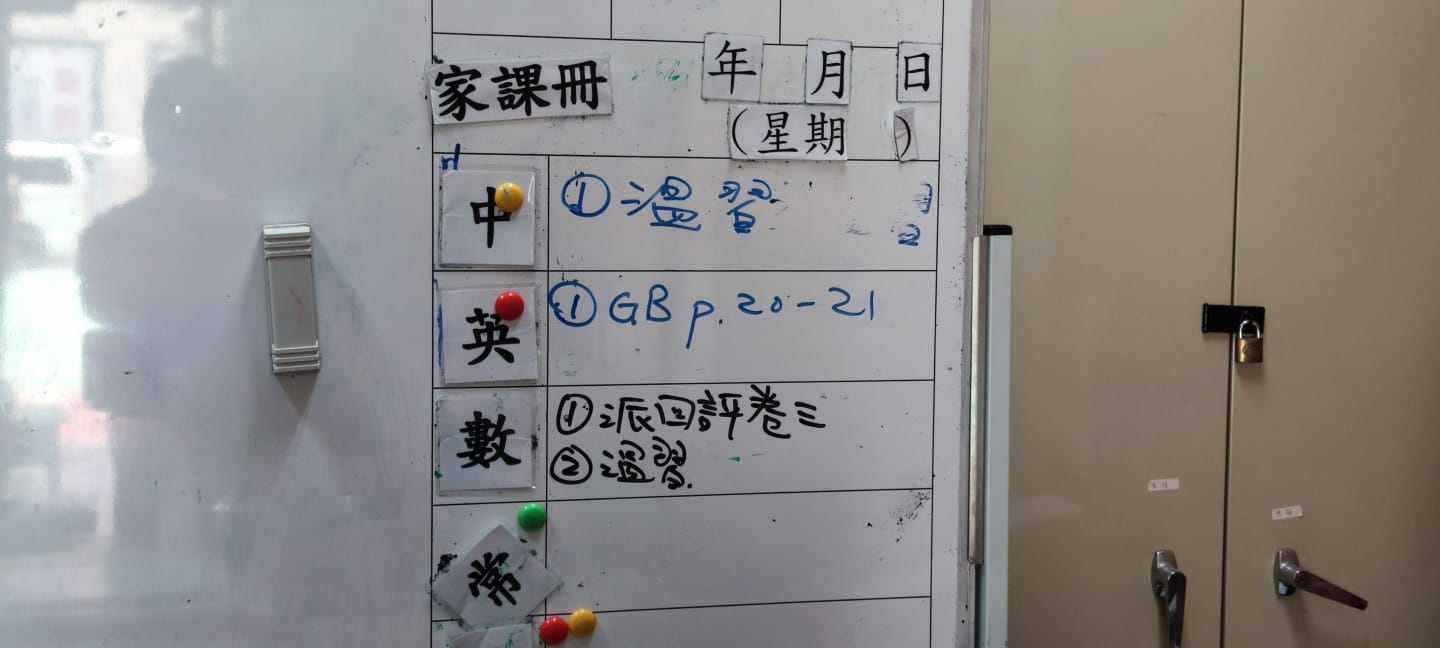 家課冊 年 月 日
(星期 )
中 ① 温習
英 ① GB p. 20-21
數 ① 派回評卷三
② 温習.
常